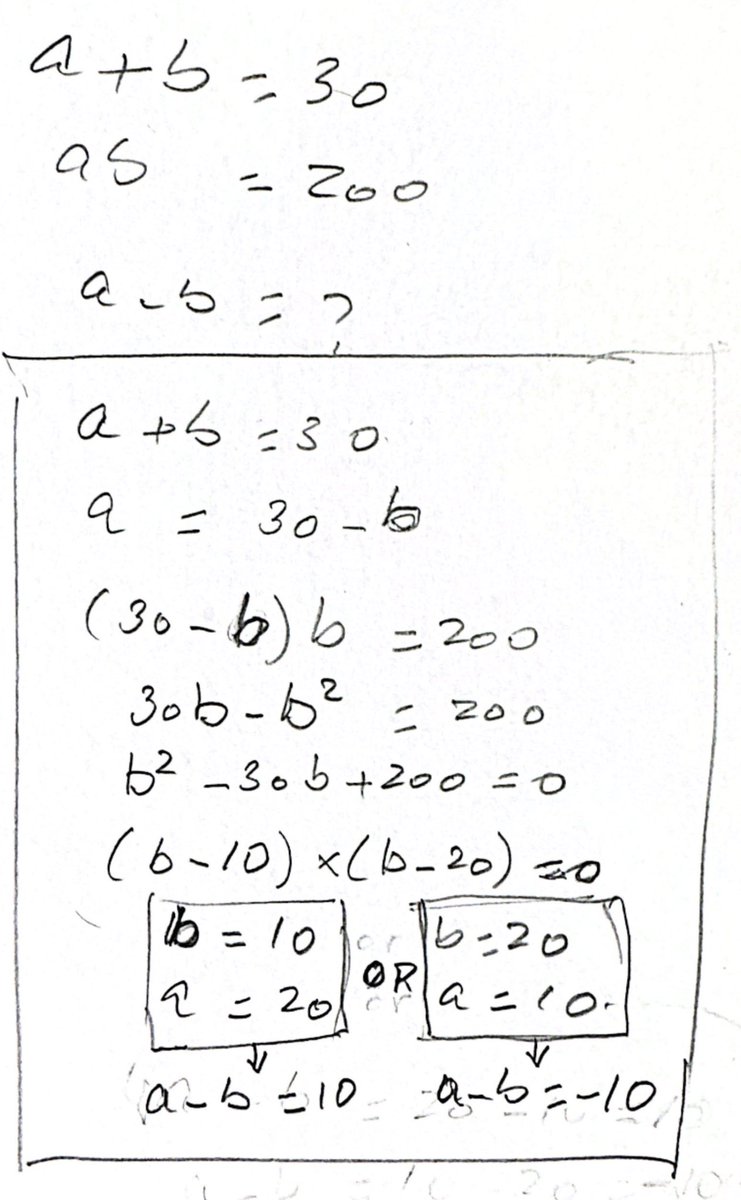 a + b = 30
ab = 200
a - b = ?
a + b = 30
a = 30 - b
(30 - b) b = 200
30b - b² = 200
b² - 30b + 200 = 0
(b - 10) × (b - 20) = 0
b = 10 OR b = 20
a = 20 a = 10
a - b = 10 a - b = -10